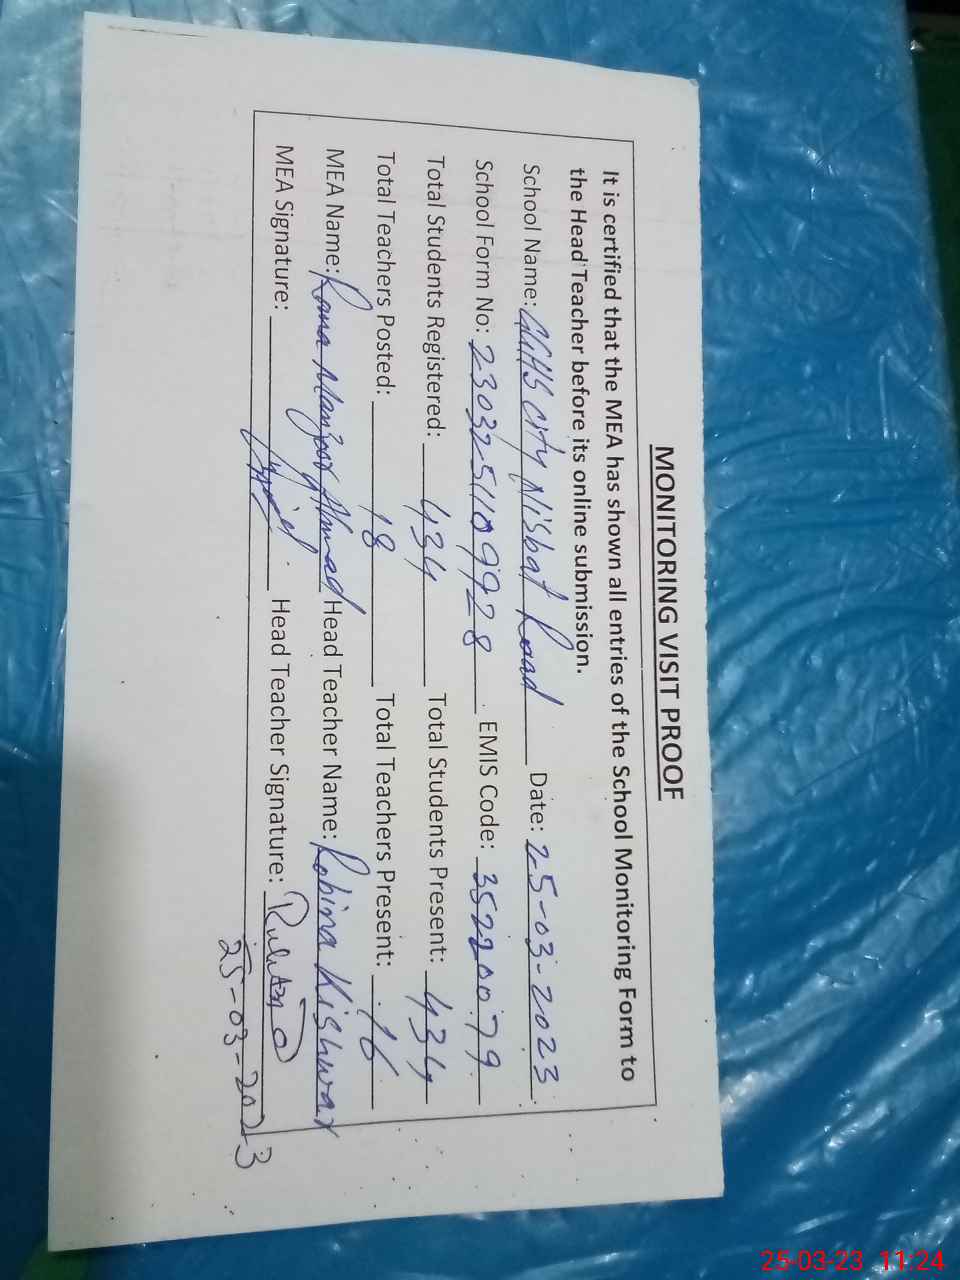 MONITORING VISIT PROOF
It is certified that the MEA has shown all entries of the School Monitoring Form to
the Head Teacher before its online submission.
School Name: GGHS City Nisbat Road Date: 25-03-2023
School Form No: 2303251109928 EMIS Code: 35220079
Total Students Registered: 434 Total Students Present: 434
Total Teachers Posted: 18 Total Teachers Present: 16
MEA Name: Rana Manzoor Ahmad Head Teacher Name: Robina Kishwar
MEA Signature: Head Teacher Signature:
25-03-2023
25-03-23 11:24